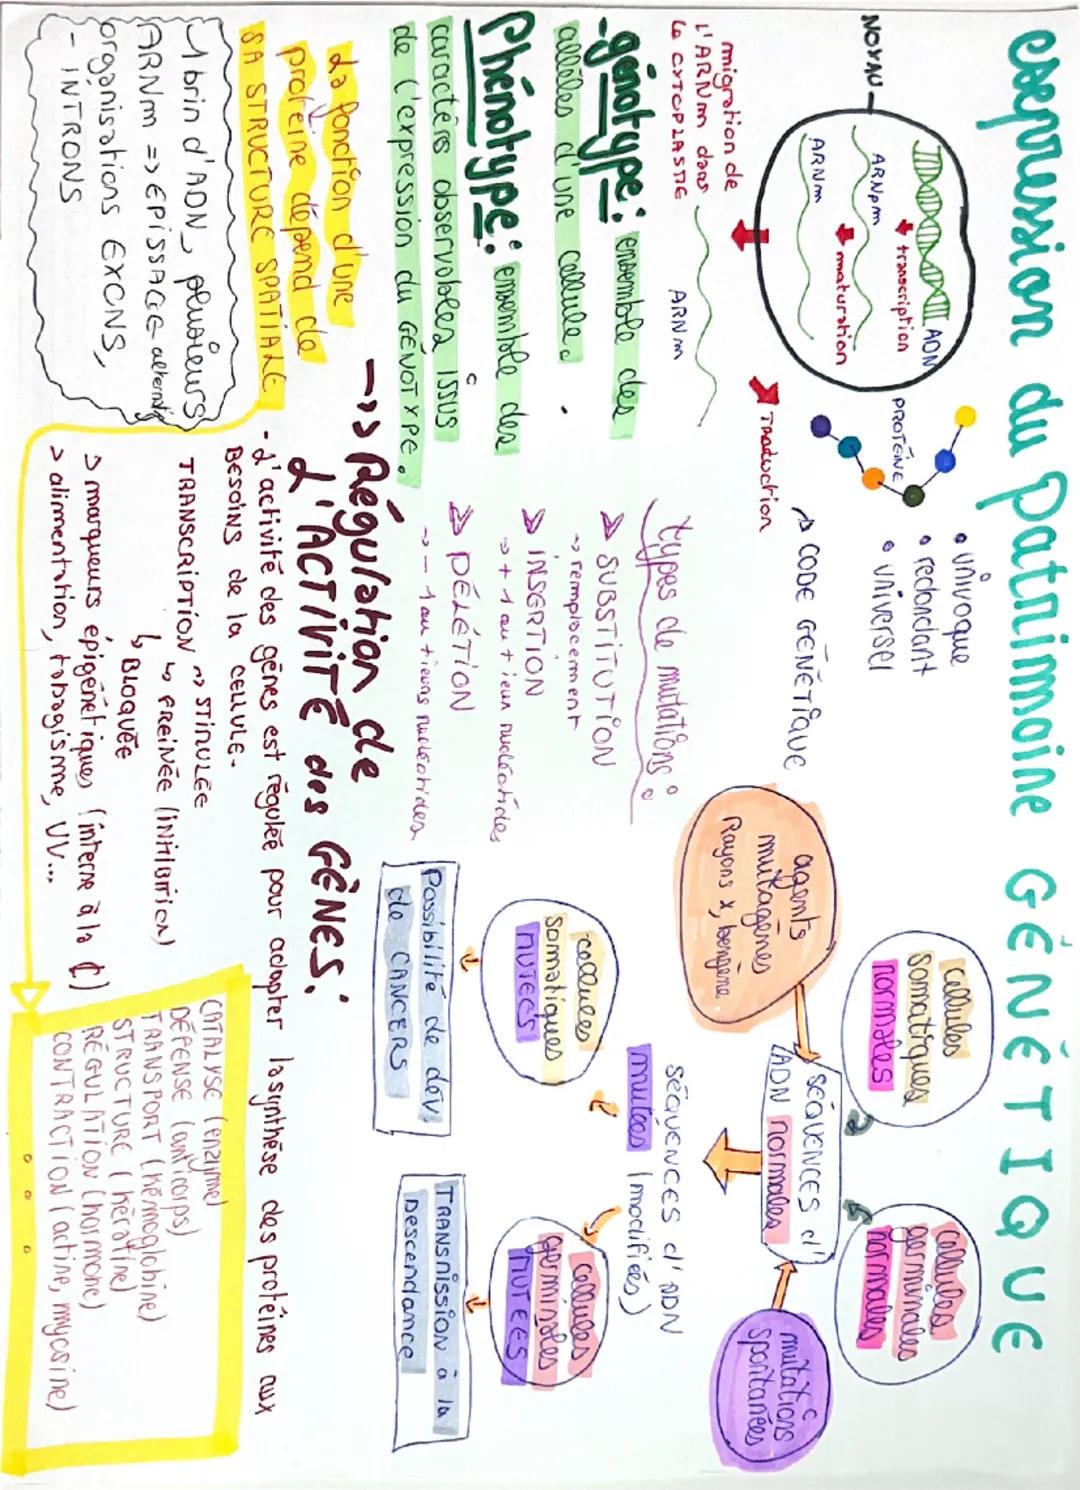 expression du Patrimoine GÉNÉTIQUE
NOYAU
ADN
transcription
ARNpm
maturation
ARNm
migration de
l'ARNm dans
le CYTOPLASME
ARNm
TRAduction
PROTÉINE
• univoque
• redondant
• universel
CODE GÉNÉTIQUE
-génotype: ensemble des
allèles d'une cellule.
Phénotype: ensemble des
caractères observables issus
de l'expression du GÉNOTYPE.
types de mutations :
> SUBSTITUTION
-> remplacement
> INSERTION
-> + 1 ou + ieurs nucléotides
> DÉLÉTION
-> - 1 ou + ieurs nucléotides
cellules
somatiques
normales
cellules
germinales
normales
agents
mutagènes
Rayons x, benzène
SÉQUENCES d'
ADN normales
mutations
spontanées
SÉQUENCES d'ADN
mutées (modifiées)
cellules
somatiques
MUTÉES
cellules
germinales
MUTÉES
Possibilité de dév
de CANCERS
TRANSMISSION à la
Descendance
->> Régulation de
L'ACTIVITÉ des GÈNES:
- L'activité des gènes est régulée pour adapter la synthèse des protéines aux
BESOINS de la CELLULE.
TRANSCRIPTION -> STIMULÉE
FREINÉE (INHIBITION)
BLOQUÉE
> marqueurs épigénétiques (interne à la ₵)
> alimentation, tabagisme, UV...
La fonction d'une
protéine dépend de
SA STRUCTURE SPATIALE
1 brin d'ADN, plusieurs
ARNm => EPISSAGE alternatif
organisations EXONS,
- INTRONS
CATALYSE (enzyme)
DÉFENSE (anticorps)
TRANSPORT (hémoglobine)
STRUCTURE (kératine)
RÉGULATION (hormone)
CONTRACTION (actine, myosine)